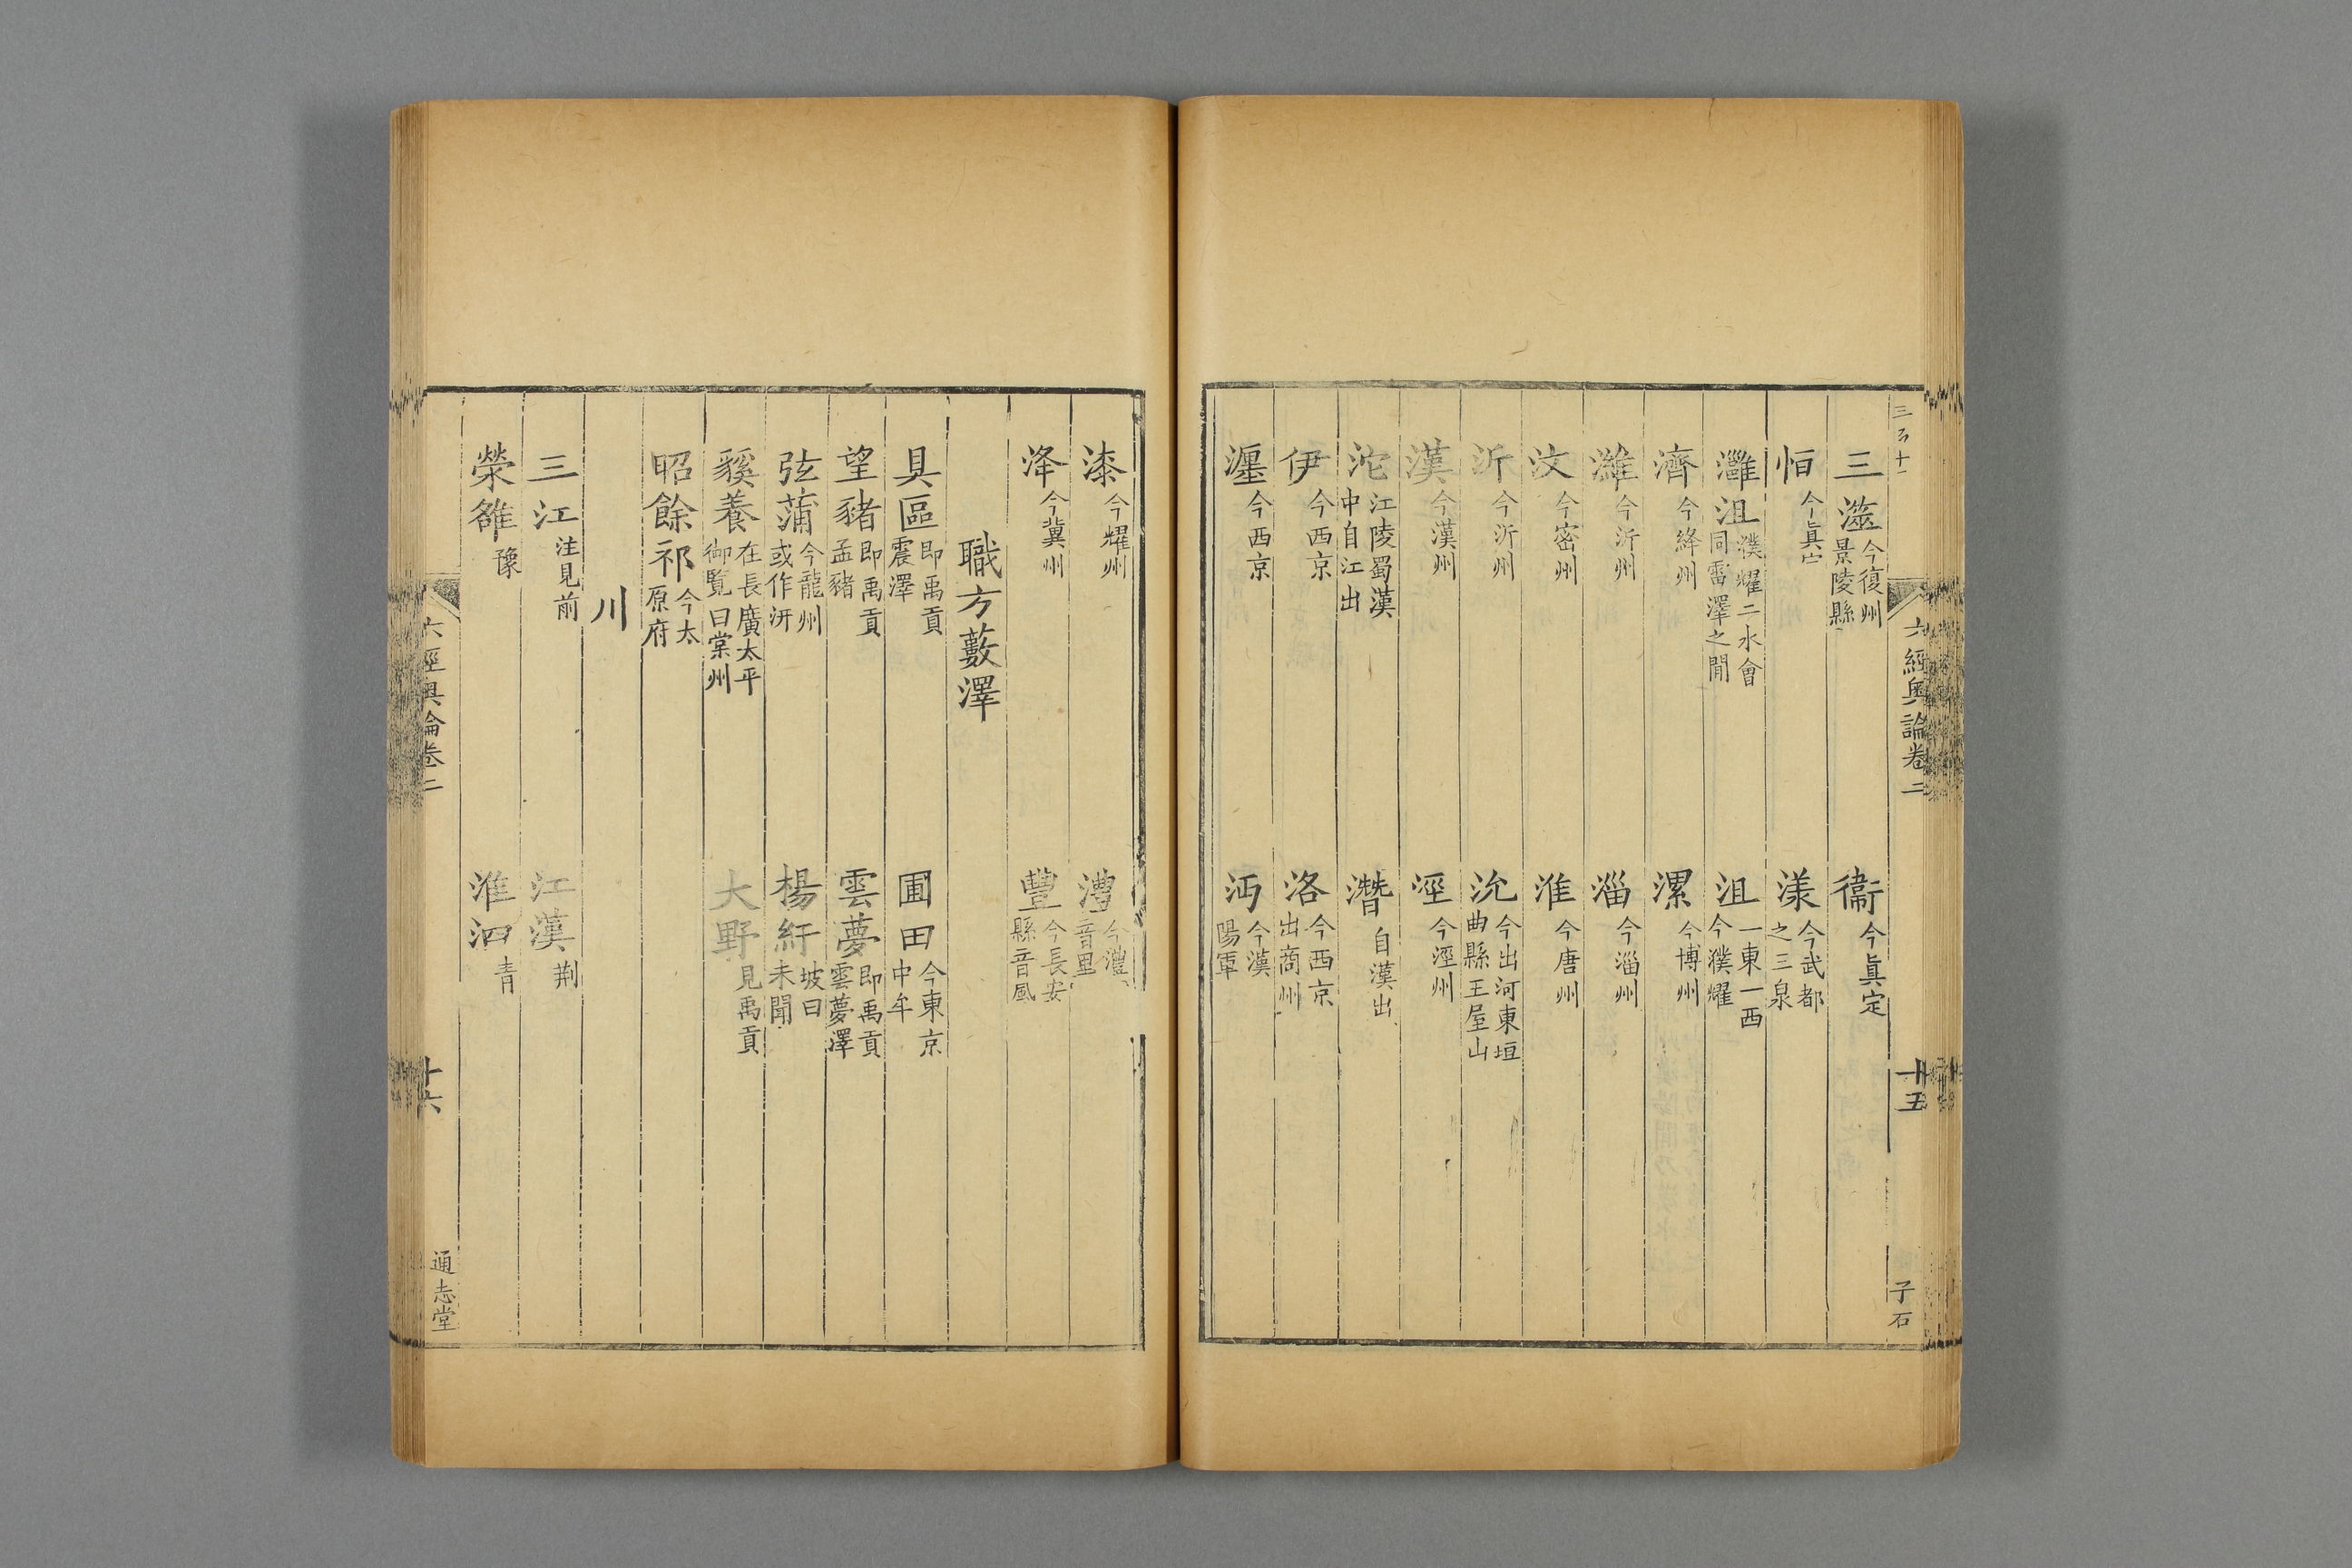 三澨今復州景陵縣 衞今眞定
恒今眞㝎 漾今武都之三泉
灉沮濮耀二水會同雷澤之閒 沮一東一西今濮耀
濟今絳州 漯今博州
濰今沂州 淄今淄州
汶今密州 淮今唐州
沂今沂州 沇今出河東垣曲縣王屋山
漢今漢州 涇今涇州
沱江陵蜀漢中自江出 濳自漢出
伊今西京 洛今西京出商州
瀍今西京 沔今漢陽軍
六經奥論卷二
十五
子石
漆今耀州 漕今澧音里
洚今冀州 豐今長安縣音風
職方藪澤
具區即禹貢震澤 圃田今東京中牟
望豬即禹貢孟豬 雲夢即禹貢雲夢澤
弦蒲今龍州或作汧 楊紆坡曰未聞
豯養在長廣太平御覧曰棠州 大野見禹貢
昭餘祁今太原府
川
三江注見前 江漢荆
滎雒豫 淮泗青
六經奥論卷二
十六
通志堂